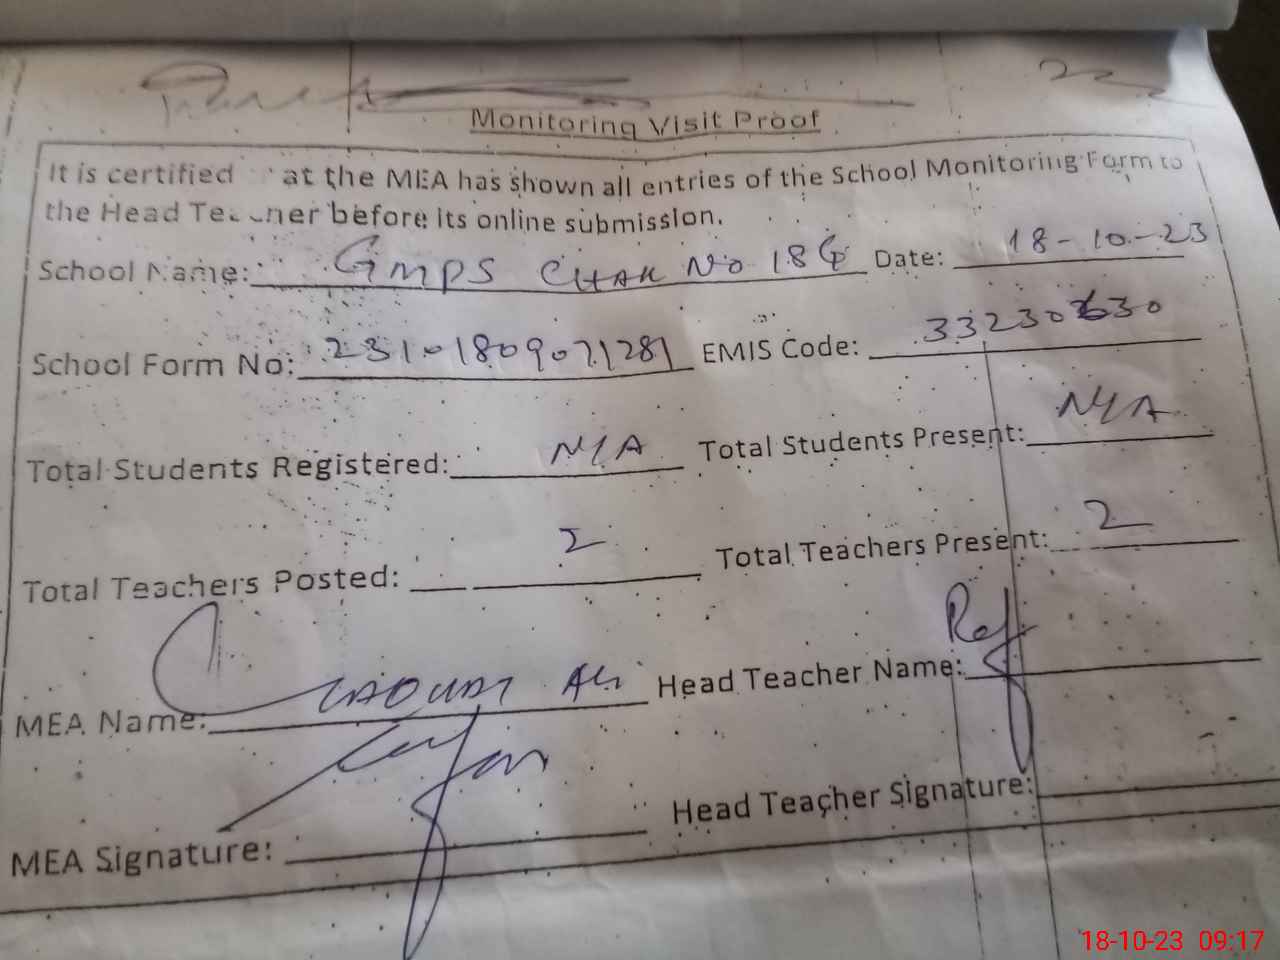 Monitoring Visit Proof
It is certified at the MEA has shown all entries of the School Monitoring Form to
the Head Teacher before its online submission.
School Name: GMPS CHAK No 18G Date: 18-10-23
School Form No: 23101809071281 EMIS Code: 33230630
Total Students Registered: N/A Total Students Present: N/A
Total Teachers Posted: 2 Total Teachers Present: 2
MEA Name: Ali Head Teacher Name:
MEA Signature: Head Teacher Signature:
18-10-23 09:17